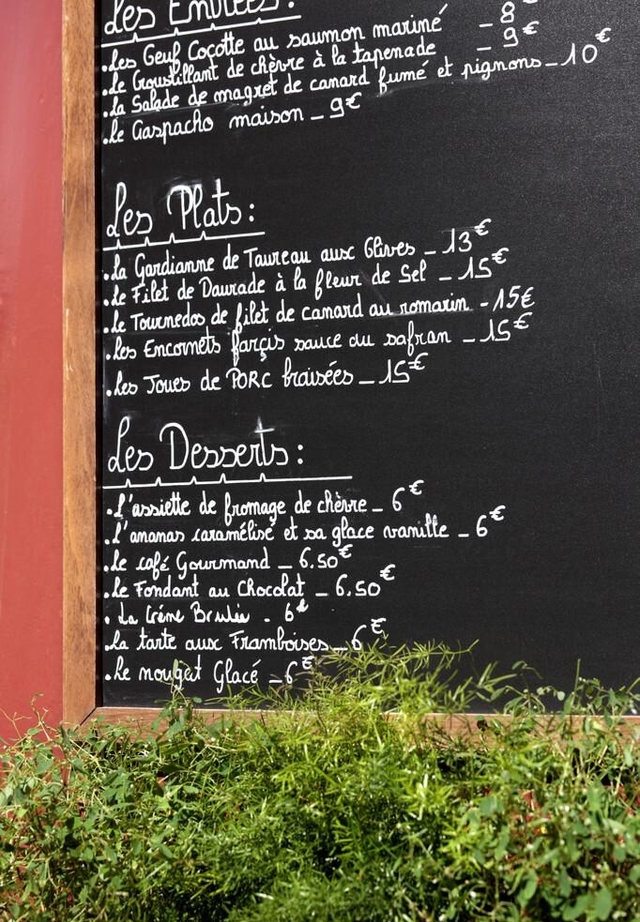 Les Entrées:
.Les Œuf Coçotte au saumon mariné - 8€
.Le Croustillant de chèvre à la tapenade - 9€
.La Salade de magret de canard fumé et pignons - 10€
.Le Gaspacho maison - 9€
Les Plats:
.La Gardianne de Taureau aux Olives - 13€
.Le Filet de Daurade à la fleur de Sel - 15€
.Le Tournedos de filet de canard au romarin - 15€
.Les Encornets farçis sauce au safran - 15€
.Les Joues de PORC braisées - 15€
Les Desserts:
.L'assiette de fromage de chèvre - 6€
.L'ananas caramélisé et sa glace vanille - 6€
.Le café Gourmand - 6.50€
.Le Fondant au Chocolat - 6.50€
.La Crème Brulée - 6€
.La tarte aux Framboises - 6€
.Le nougat Glacé - 6€